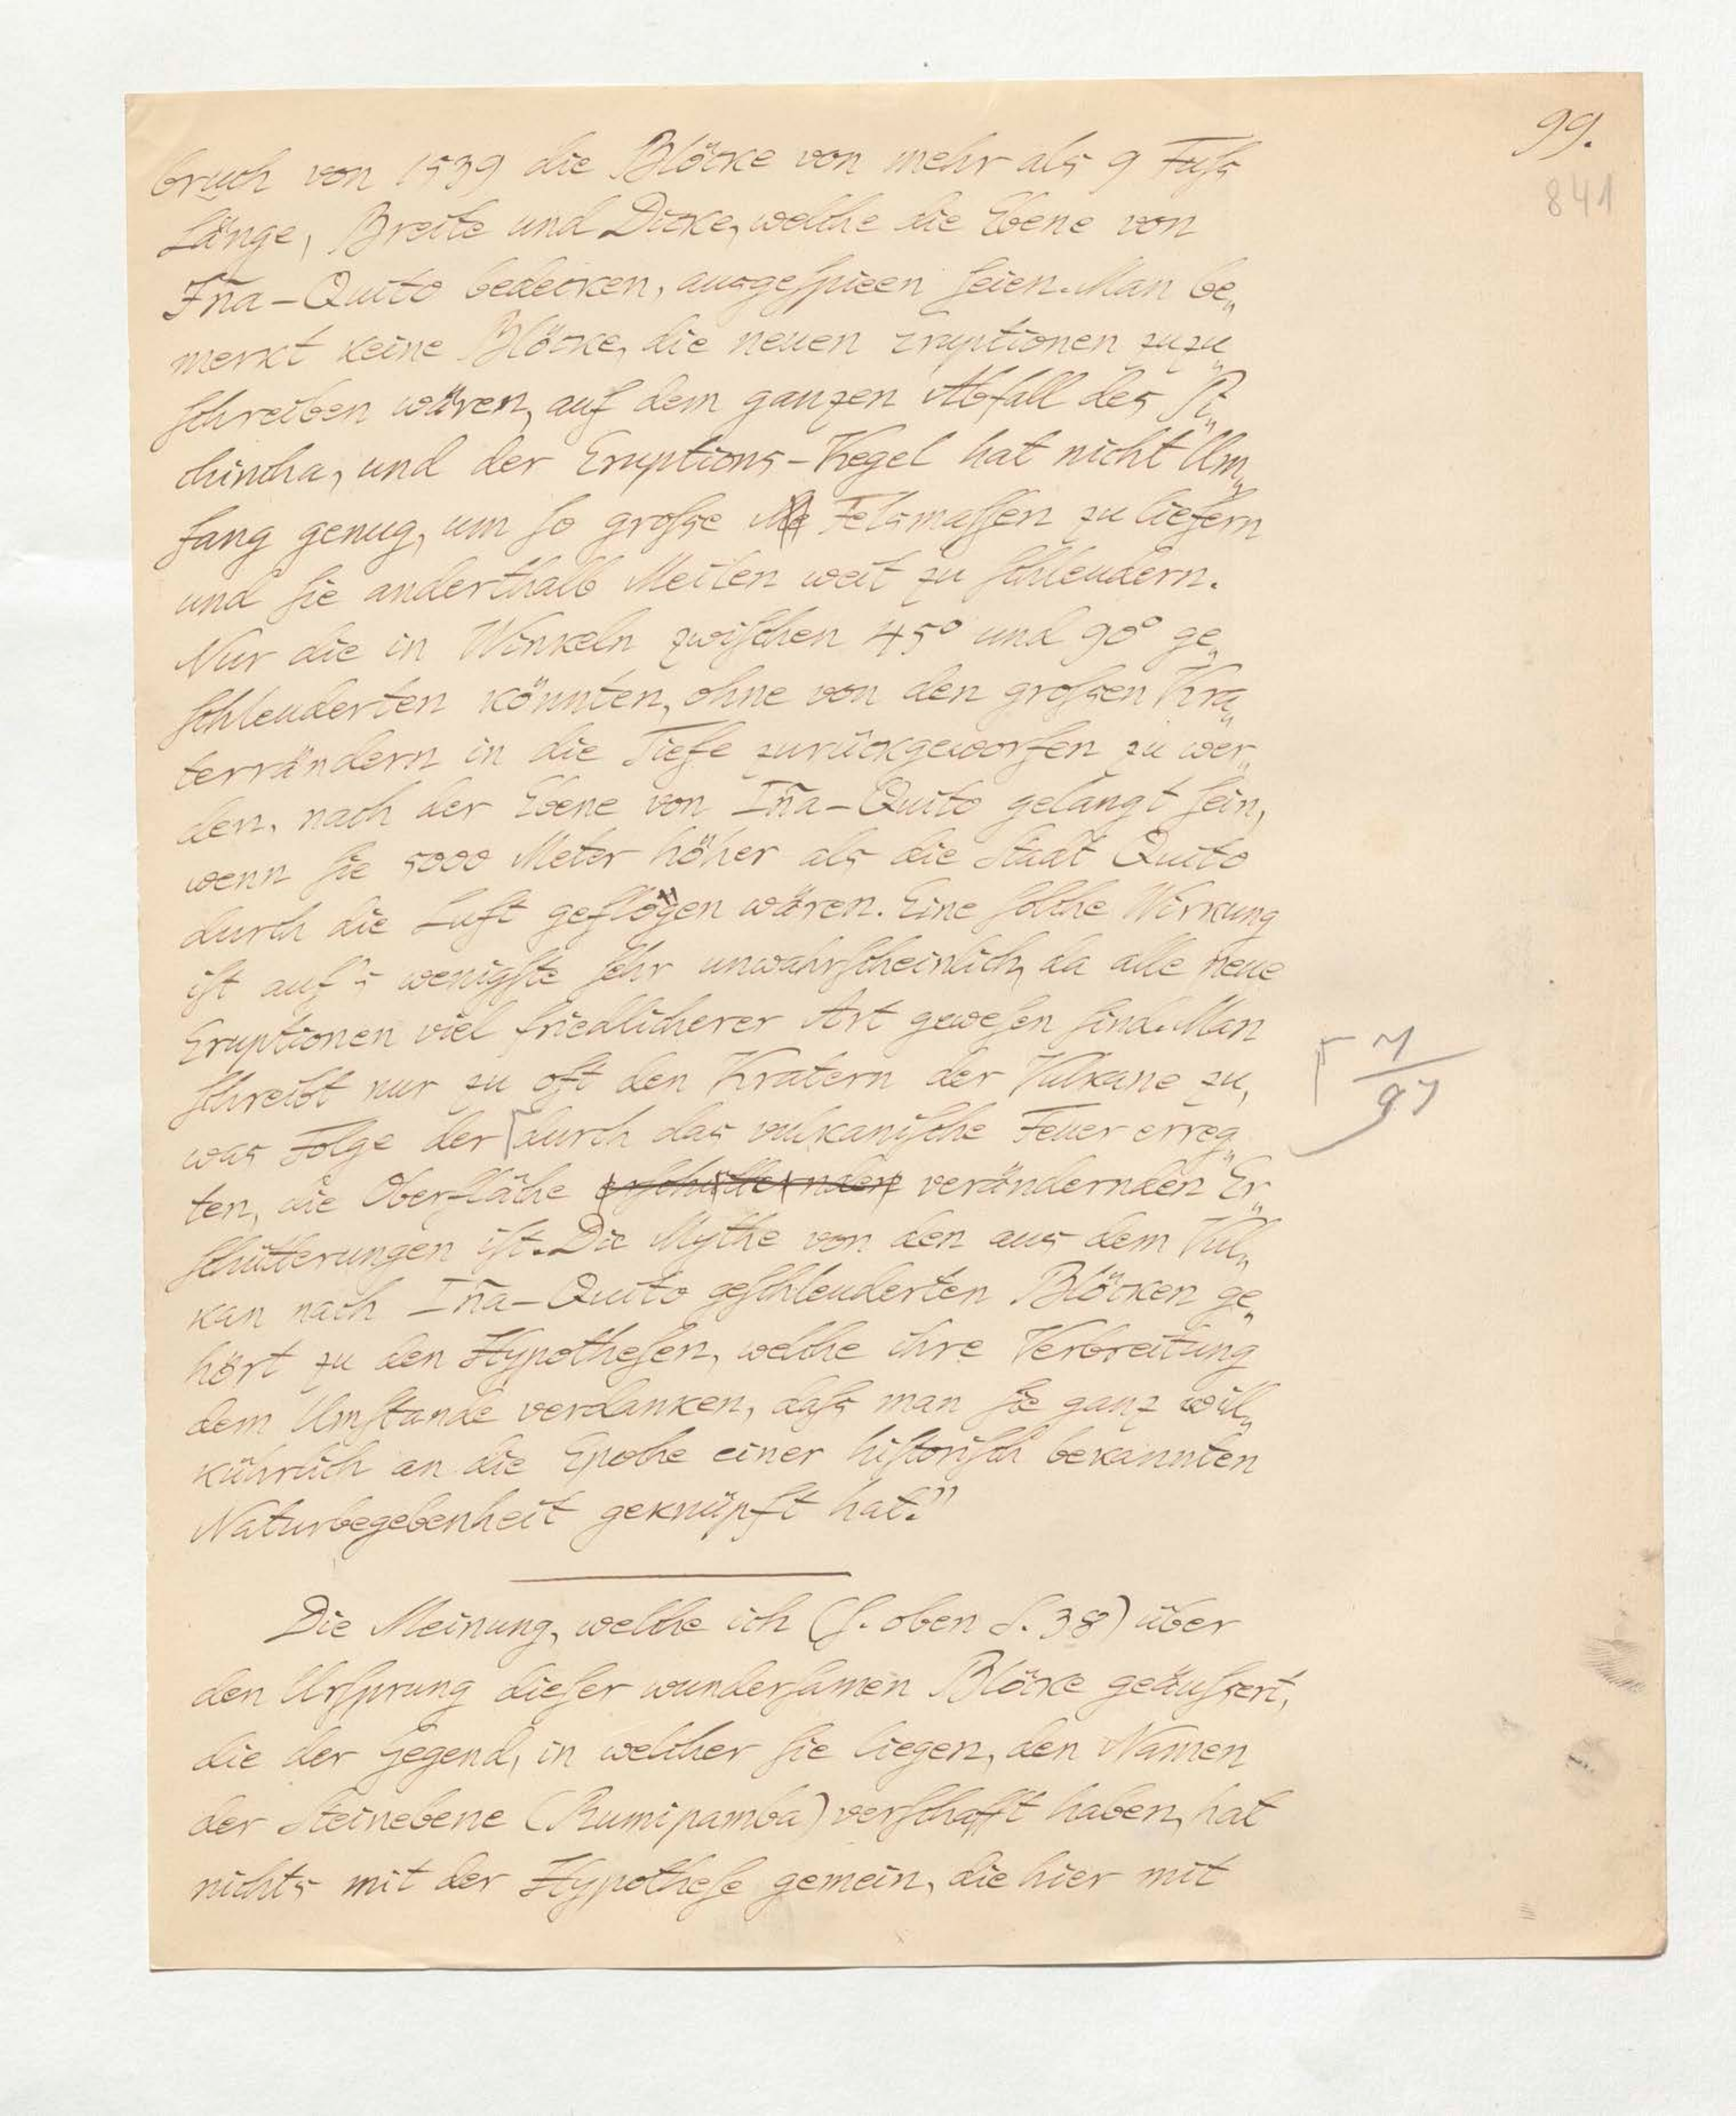 99.
841
bruch von 1539 die Blöcke von mehr als 9 Fuſs
Länge, Breite und Dicke, welche die Ebene von
Iña-Quito bedecken, ausgeſpieen ſeien. Man be„
merkt keine Blöcke, die neuen Eruptionen zuzu„
ſchreiben wären, auf dem ganzen Abfall des Pi„
chincha, und der Eruptions-Kegel hat nicht Um„
fang genug, um ſo groſse Felsmaſſen zu liefern
und ſie anderthalb Meilen weit zu ſchleudern.
Nur die in Winkeln zwiſchen 45° und 90° ge„
ſchleuderten könnten, ohne von den groſsen Kra„
terrändern in die Tiefe zurückgeworfen zu wer„
den, nach der Ebene von Iña-Quito gelangt ſein,
wenn ſie 5000 Meter höher als die Stadt Quito
durch die Luft geflogen wären. Eine ſolche Wirkung
iſt auf's wenigſte ſehr unwahrſcheinlich, da alle neue
Eruptionen viel friedlicherer Art geweſen ſind. Man
ſchreibt nur zu oft den Kratern der Vulkane zu,
was Folge der durch das vulkaniſche Feuer erreg„
ten, die Oberfläche erſchütternden verändernden Er„
ſchütterungen iſt. Die Mythe von den aus dem Vul„
kan nach Iña-Quito geſchleuderten Blöcken ge„
hört zu den Hypotheſen, welche ihre Verbreitung
dem Umſtande verdanken, daſs man ſie ganz will„
kührlich an die Epoche einer hiſtoriſch bekannten
Naturbegebenheit geknüpft hat."
Die Meinung, welche ich (ſ. oben S. 38) über
den Urſprung dieſer wunderſamen Blöcke geäuſsert,
die der Gegend, in welcher ſie liegen, den Namen
der Steinebene (Rumipamba) verſchafft haben, hat
nichts mit der Hypotheſe gemein, die hier mit